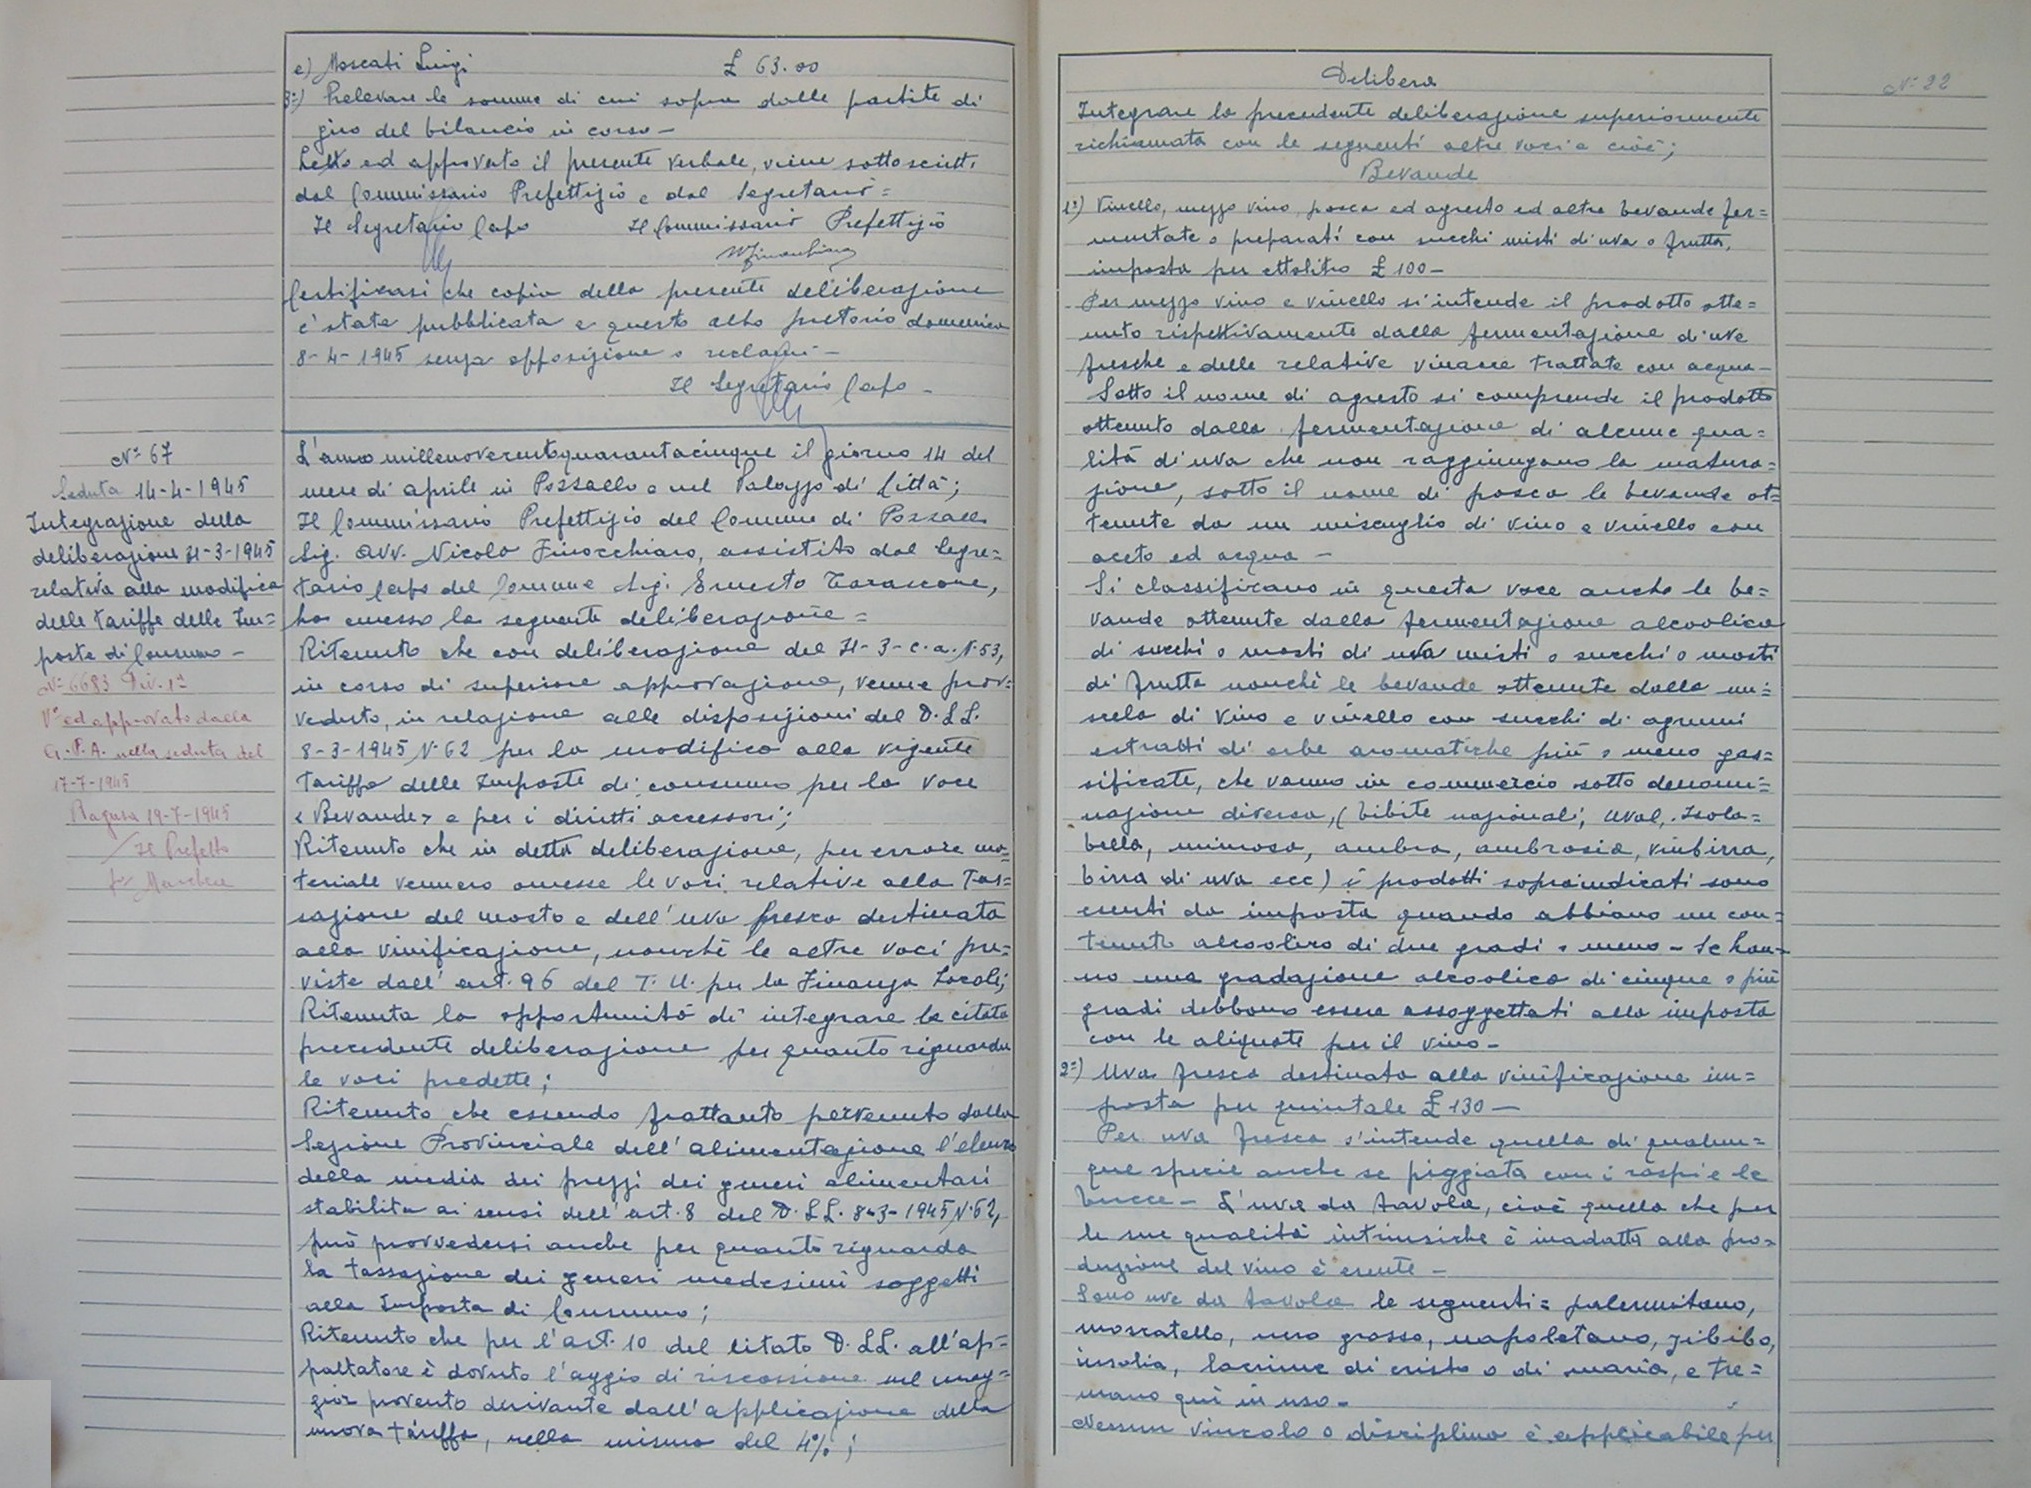 e) Moscati Luigi £ 63.00
3°) Prelevare le somme di cui sopra dalle partite di
giro del bilancio in corso -
Letto ed approvato il presente verbale, viene sottoscritto
dal Commissario Prefettizio e dal Segretario =
Il Segretario Capo Il Commissario Prefettizio
Certificasi che copia della presente deliberazione
è stata pubblicata a questo albo pretorio domenica
8-4-1945 senza opposizione o reclami -
Il Segretario Capo -
N° 67
Seduta 14-4-1945
Integrazione della
deliberazione 31-3-1945
relativa alla modifica
delle tariffe delle Im=
poste di Consumo -
N° 6683 Div. 1ª
V° ed approvato dalla
G.P.A. nella seduta del
17-7-1945
Ragusa 19-7-1945
Il Prefetto
L'anno millenovecentoquarantacinque il giorno 14 del
mese di aprile in Pozzallo e nel Palazzo di Città;
Il Commissario Prefettizio del Comune di Pozzallo
Sig. Avv. Nicolo Finocchiaro, assistito dal Segre=
tario Capo del Comune Sig. Ernesto Tarascone,
ha emesso la seguente deliberazione =
Ritenuto che con deliberazione del 31-3-c.a. N.53,
in corso di superiore approvazione, venne prov=
veduto, in relazione alle disposizioni del D.L.L.
8-3-1945 N.62 per la modifica alla vigente
tariffa delle Imposte di consumo per la voce
«Bevande» e per i diritti accessori;
Ritenuto che in detta deliberazione, per errore ma=
teriale vennero omesse le voci relative alla tas=
sazione del mosto e dell'uva fresca destinata
alla vinificazione, nonchè le altre voci pre=
viste dall'art. 96 del T.U. per la Finanza Locale;
Ritenuta la opportunità di integrare la citata
precedente deliberazione per quanto riguarda
le voci predette;
Ritenuto che essendo frattanto pervenuto dalla
Sezione Provinciale dell'alimentazione l'elenco
della media dei prezzi dei generi alimentari
stabilita ai sensi dell'art. 8 del D.L.L. 8-3-1945 N.62,
può provvedersi anche per quanto riguarda
la tassazione dei generi medesimi soggetti
alla Imposta di Consumo;
Ritenuto che per l'art. 10 del citato D.L.L. all'ap=
paltatore è dovuto l'aggio di riscossione nel mag=
gior provento derivante dall'applicazione della
nuova tariffa, nella misura del 4%;
N° 22
Delibera
Integrare la precedente deliberazione superiormente
richiamata con le seguenti altre voci e cioè;
Bevande
1°) Vinello, mezzo vino, posca ed agresto ed altre bevande fer=
mentate o preparati con succhi misti di uva o frutta,
imposta per ettolitro £ 100-
Per mezzo vino e vinello si intende il prodotto otte=
nuto rispettivamente dalla fermentazione di uve
fresche e delle relative vinacce trattate con acqua-
Sotto il nome di agresto si comprende il prodotto
ottenuto dalla fermentazione di alcune qua=
lità di uva che non raggiungono la matura=
zione, sotto il nome di posca le bevande ot=
tenute da un miscuglio di vino e vinello con
aceto ed acqua -
Si classificano in questa voce anche le be=
vande ottenute dalla fermentazione alcoolica
di succhi o mosti di uva misti o succhi o mosti
di frutta nonchè le bevande ottenute dalla mi=
scela di vino e vinello con succhi di agrumi
estratti di erbe aromatiche più o meno gas=
sificate, che vanno in commercio sotto denomi=
nazione diversa, (bibite nazionali; uval, Isola=
bella, mimosa, ambra, ambrosia, vinbirra,
birra di uva ecc) i prodotti sopraindicati sono
esenti da imposta quando abbiano un con=
tenuto alcoolico di due gradi o meno - Se han=
no una gradazione alcoolica di cinque o più
gradi debbono essere assoggettati alla imposta
con le aliquote per il vino -
2°) Uva fresca destinata alla vinificazione im=
posta per quintale £ 130 -
Per uva fresca s'intende quella di qualun=
que specie anche se piggiata con i raspi e le
bucce - L'uva da tavola, cioè quella che per
le sue qualità intrinsiche è inadatta alla pro=
duzione del vino è esente -
Sono uve da tavola le seguenti = palermitano,
moscatello, nero grosso, napoletano, zibibo,
insolia, lacrime di cristo o di maria, e tre=
mano qui in uso -
Nessun vincolo o disciplina è applicabile per